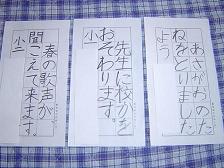 あさがおのた
ねをとりました
よう
先生に校かを
おそわります。
小一
春の歌声が
聞こえて来ます。
小二